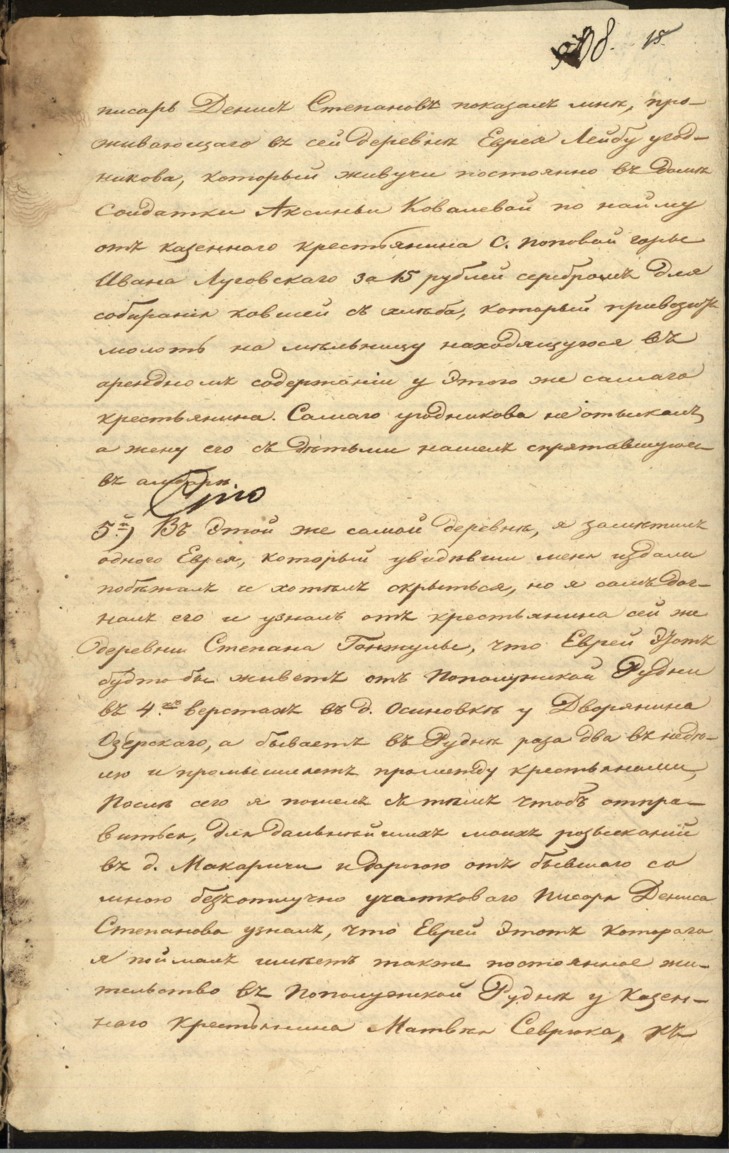 18.
писарь Денисъ Степановъ показалъ мнѣ, про-
живающаго въ сей деревнѣ Еврея Лейбу угод-
никова, который живучи постоянно въ домѣ
Солдатки Аксиньи Ковалевой по найму
отъ казеннаго крестьянина С. Поповой горы
Ивана Луговскаго за 15 рублей серебромъ для
собиранія ковшей съ хлѣба, который привозятъ
молоть на мѣльницу находящуюся въ
арендномъ содержаніи у этого же самаго
крестьянина. Самаго угодникова не отыскалъ,
а жену его съ дѣтьми нашелъ спрятавшуюся
въ амбарѣ.
5й) Въ этой же самой деревнѣ, я замѣтилъ
одного Еврея, который увидѣвши меня издали
побѣжалъ и хотѣлъ скрыться, но я самъ дог-
налъ его и узналъ отъ крестьянина сей же
деревни Степана Ганжулы, что Еврей этотъ
будто бы живетъ отъ Рудни
въ 4хъ верстахъ въ д. Осиновкѣ у Дворянина
Озерскаго, а бываетъ въ Руднѣ раза два въ недѣ-
лю и промышляетъ промежду крестьянами,
Послѣ сего я пошелъ съ тѣмъ чтобъ отпра-
виться, для дальнѣйшихъ моихъ розысканій
въ д. Макаричи и дорогою отъ бывшаго со
мною безъотлучно участковаго Писаря Дениса
Степанова узналъ, что Еврей этотъ котораго
я поймалъ имѣетъ также постоянное жи-
тельство въ Руднѣ у Казен-
наго крестьянина Матвея Севрюка, къ